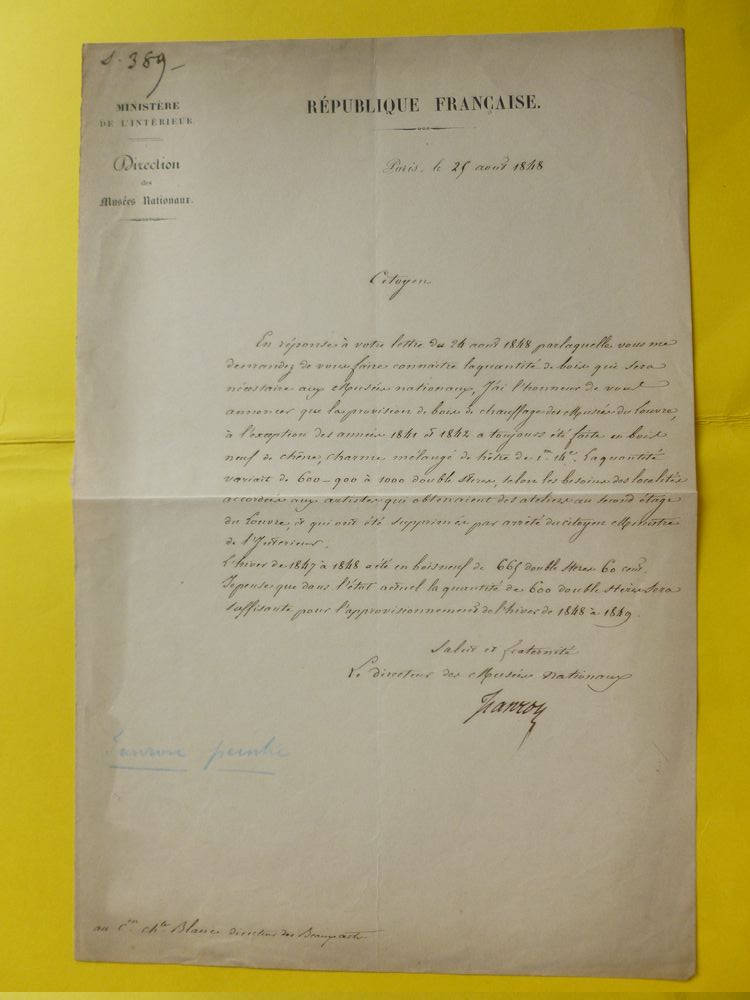 S. 389_
MINISTÈRE
DE L'INTÉRIEUR.
Direction
des
Musées Nationaux.
RÉPUBLIQUE FRANÇAISE.
Paris, le 25 août 1848
Citoyen
En réponse à votre lettre du 24 août 1848 par laquelle vous me
demandez de vous faire connaître la quantité de bois qui sera
nécessaire aux Musées nationaux, J'ai l'honneur de vous
annoncer que la provision de bois de chauffage des Musées du Louvre,
à l'exception des années 1841 et 1842 a toujours été faite en bois
neuf de chêne, charme mélangé de hêtre de La quantité
variait de 600 - 900 à 1000 double stères, selon les besoins des localités
accordées aux artistes qui obtenaient des ateliers au second étage
du Louvre, et qui ont été supprimés par arrêté du citoyen Ministre
de l'Intérieur.
L'hiver de 1847 à 1848 a été en bois neuf de 665 double stères 60 cent.
Je pense que dans l'état actuel la quantité de 600 double stères sera
suffisante pour l'approvisionnement de l'hiver de 1848 à 1849.
Salut et fraternité
Le directeur des Musées nationaux
Jeanron
Jeanron peintre
au Cen Chles Blanc directeur des Beaux arts